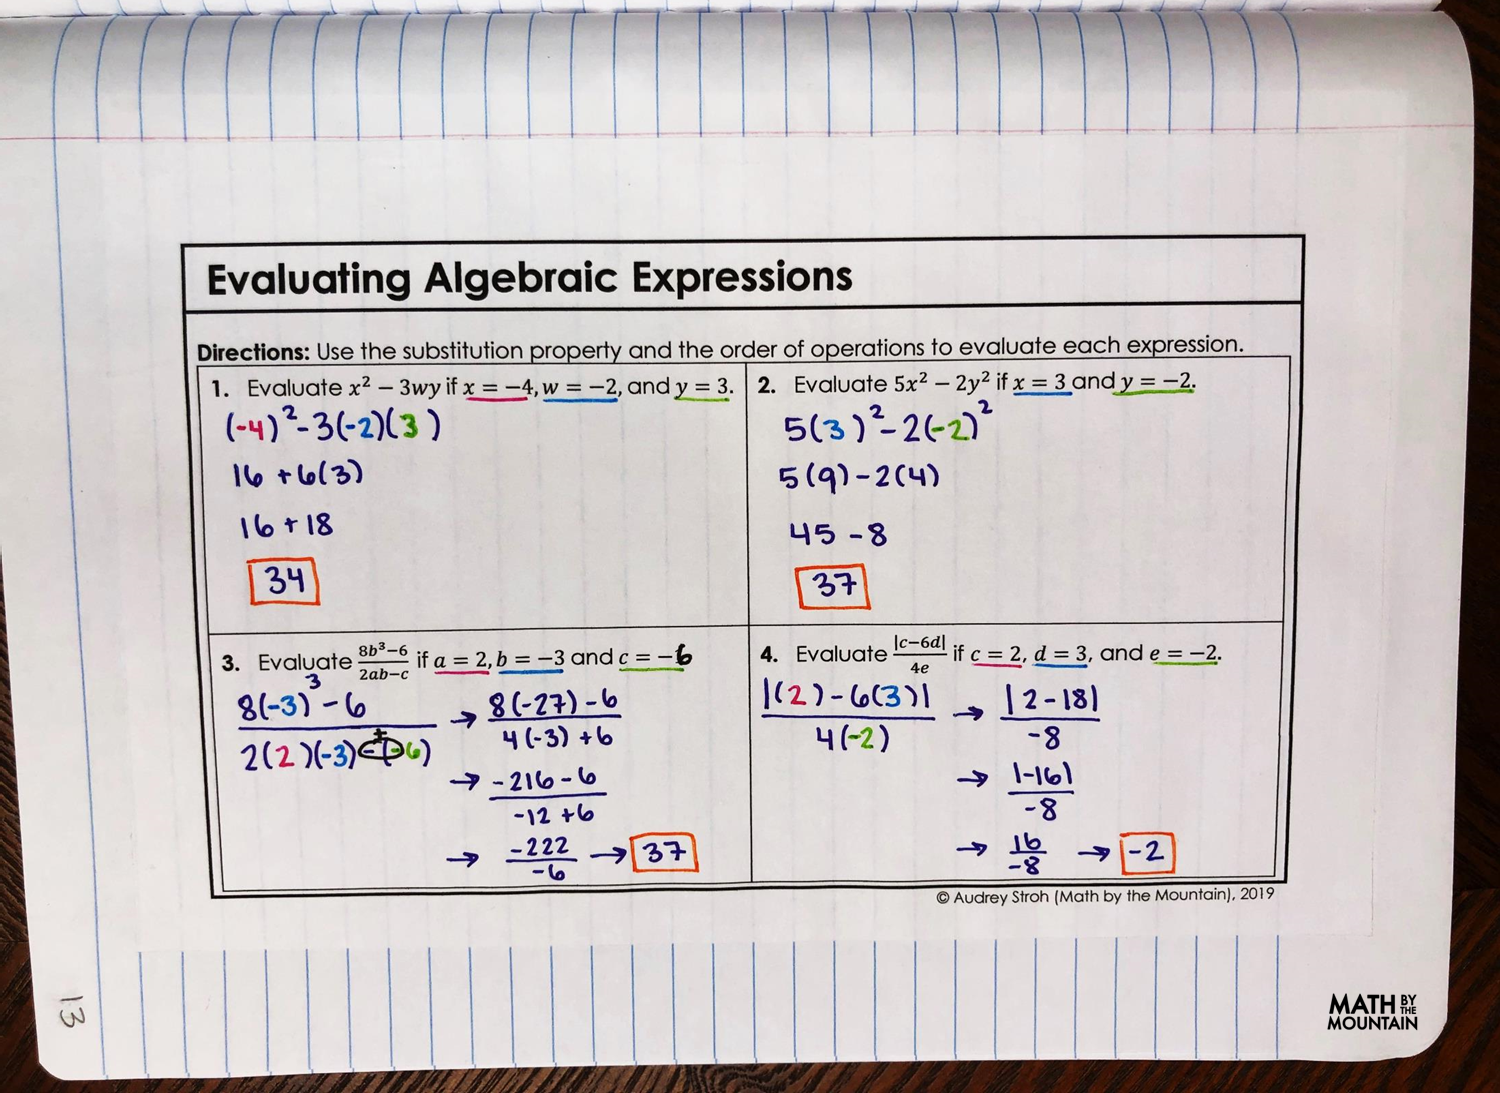 Evaluating Algebraic Expressions
Directions: Use the substitution property and the order of operations to evaluate each expression.
1. Evaluate x² − 3wy if x = −4, w = −2, and y = 3.
(-4)² - 3(-2)(3)
16 + 6(3)
16 + 18
34
2. Evaluate 5x² − 2y² if x = 3 and y = −2.
5(3)² - 2(-2)²
5(9) - 2(4)
45 - 8
37
3. Evaluate (8b³−6)/(2ab−c) if a = 2, b = −3 and c = −6
8(-3)³ - 6
2(2)(-3) - (-6)
+
→ 8(-27) - 6
4(-3) + 6
→ -216 - 6
-12 + 6
→ -222
-6
→ 37
4. Evaluate |c−6d|/4e if c = 2, d = 3, and e = −2.
|(2) - 6(3)|
4(-2)
→ |2 - 18|
-8
→ |-16|
-8
→ 16
-8
→ -2
© Audrey Stroh (Math by the Mountain), 2019
13
MATH BY THE
MOUNTAIN